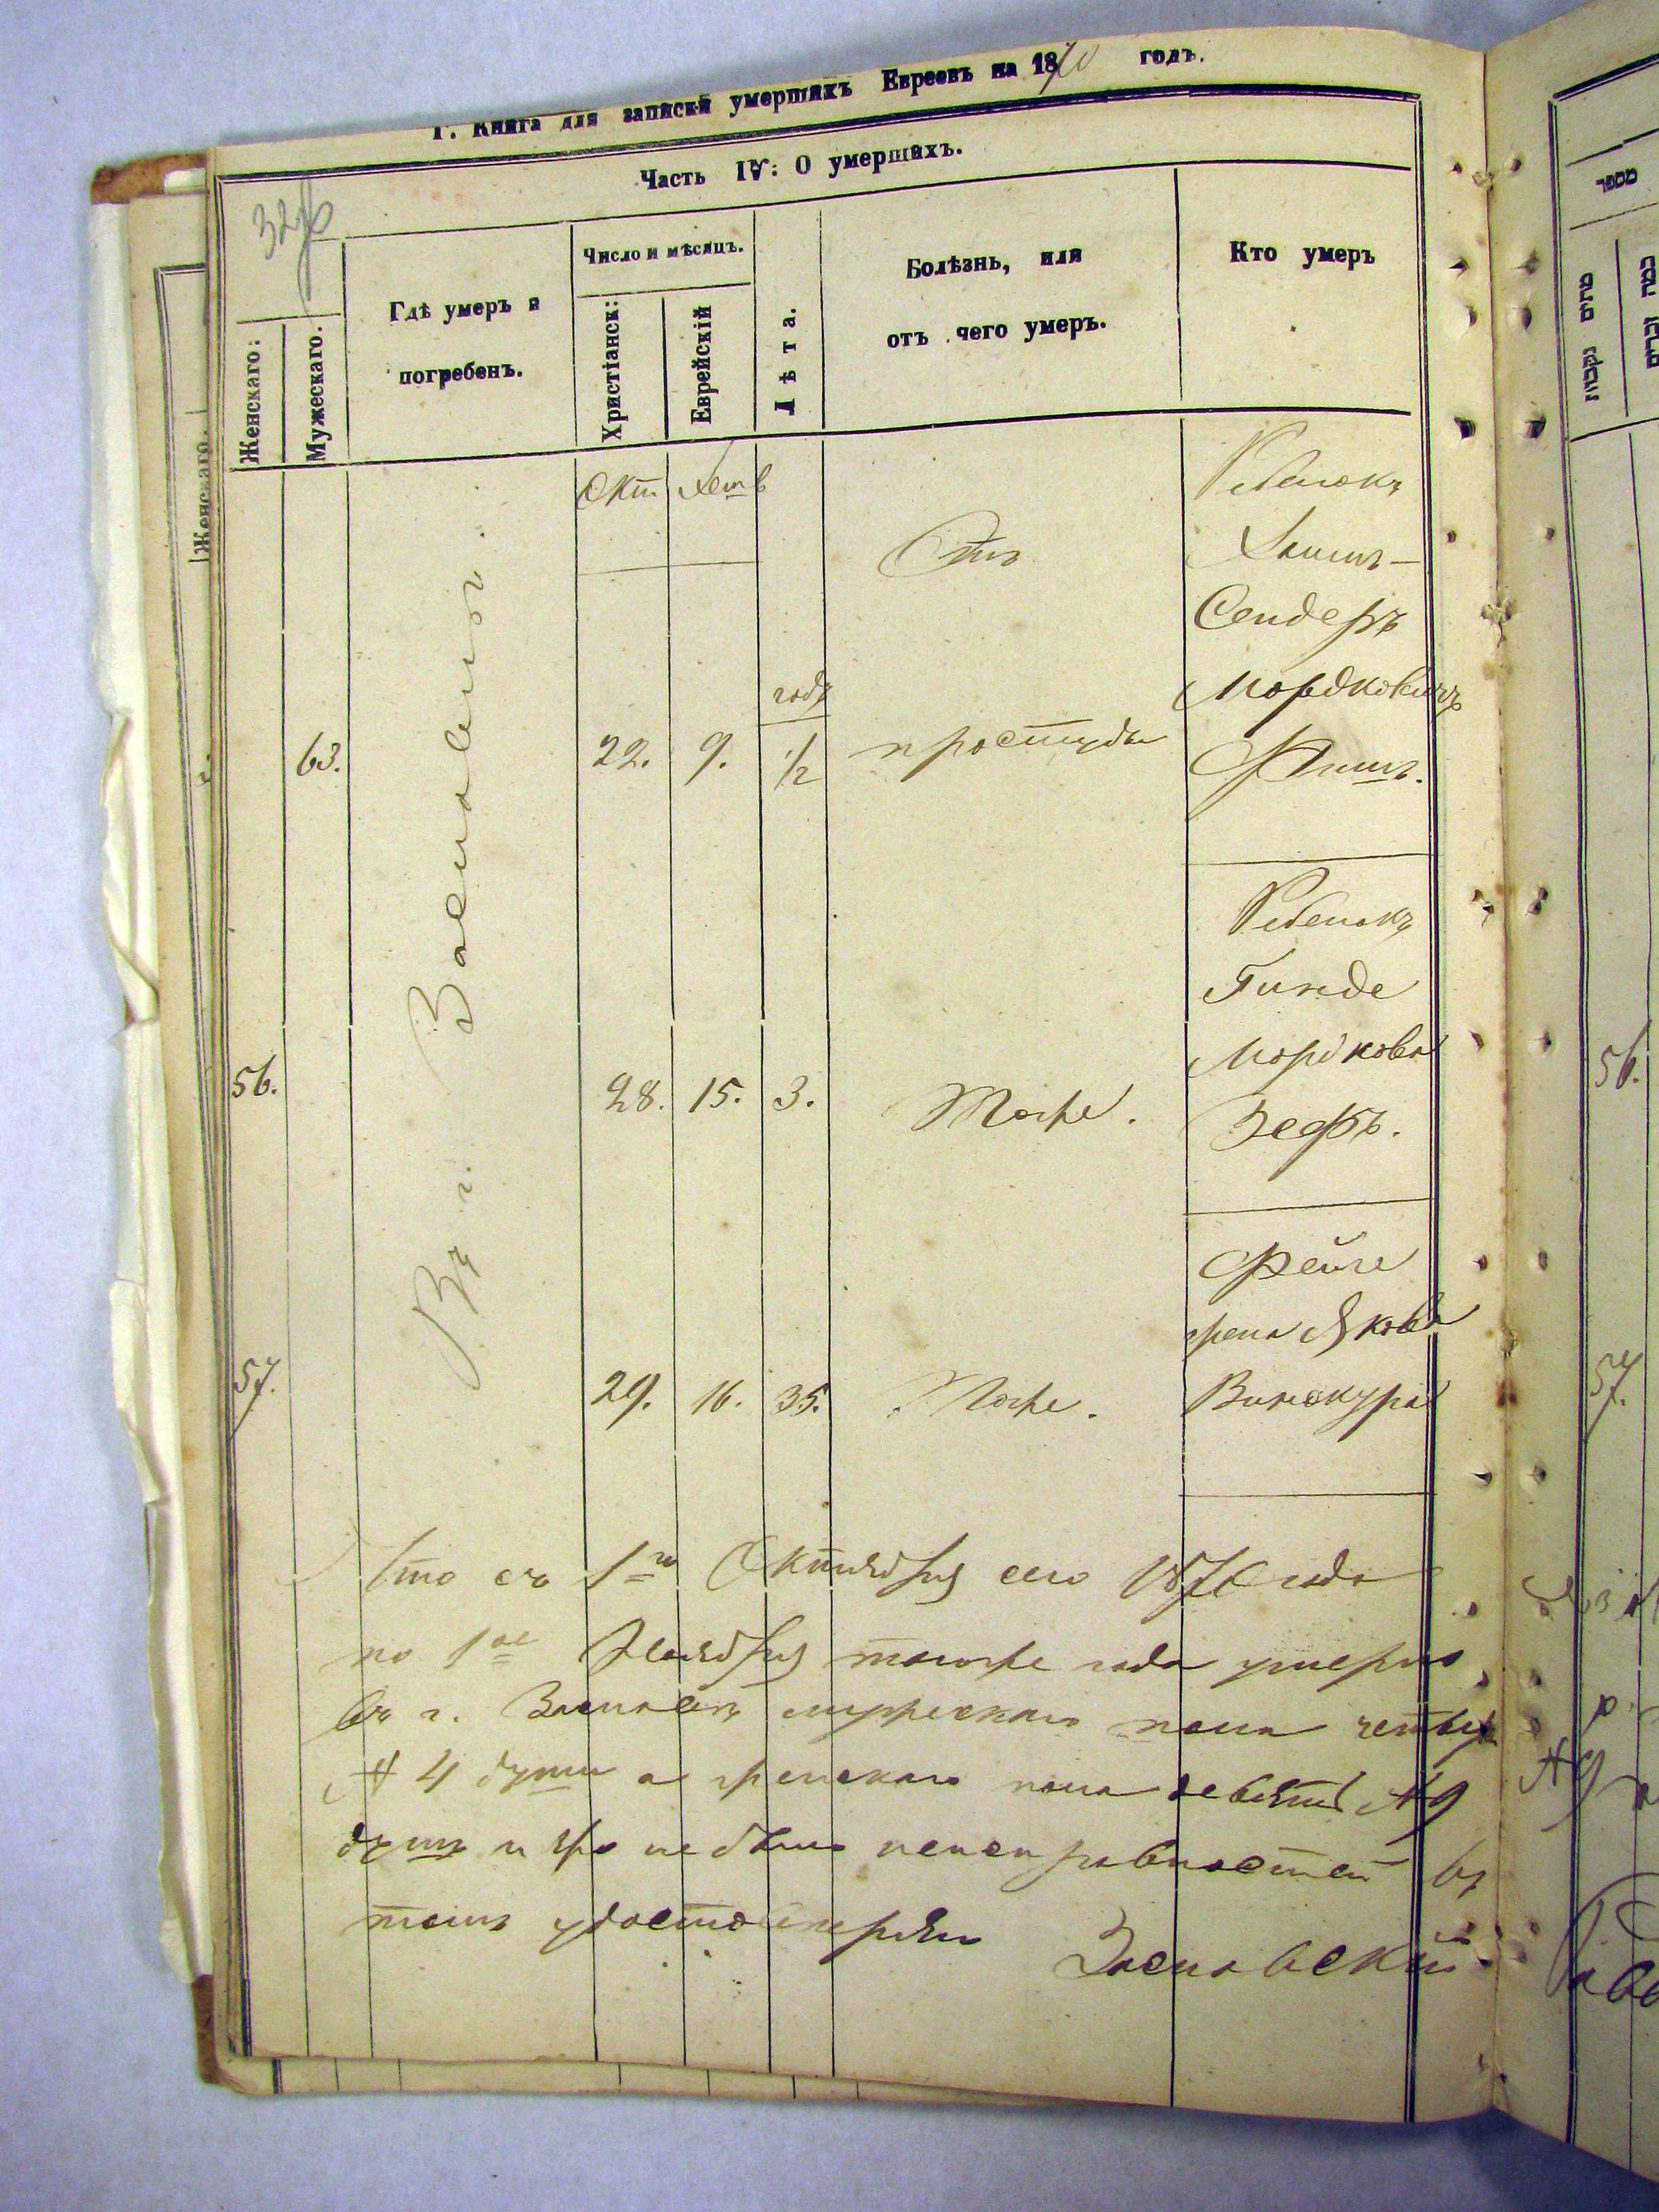 Г. Книга для записки умершихъ Евреевъ на 1870 годъ.
Часть IV: О умершихъ.
Женскаго:
Мужескаго.
Гдѣ умеръ и
погребенъ.
Число и мѣсяцъ.
Христіанск:
Еврейскій
Лѣта.
Болѣзнь, или
отъ чего умеръ.
Кто умеръ
Женскаго.
Въ г. Заславлѣ
Окт
Хешв
63.
22.
9.
годъ
1/2
Отъ
простуды
Ребенокъ
Хаимъ-
Сендеръ
Мордковичъ
Фишъ.
56.
28.
15.
3.
Тоже.
Ребенокъ
Гинде
Мордкова
Зефъ.
57.
29.
16.
35.
Тоже.
Фейге
жена Якова
Винокура
Что съ 1го Октября сего 1870 года
по 1ое Ноября тогоже года умерло
въ г. Заславлѣ мужескаго пола четыре
№ 4 души а женскаго пола девять № 9
душъ и что небыло неисправностей въ
томъ удостовѣряю Заславскій
56.
57.
№ 9